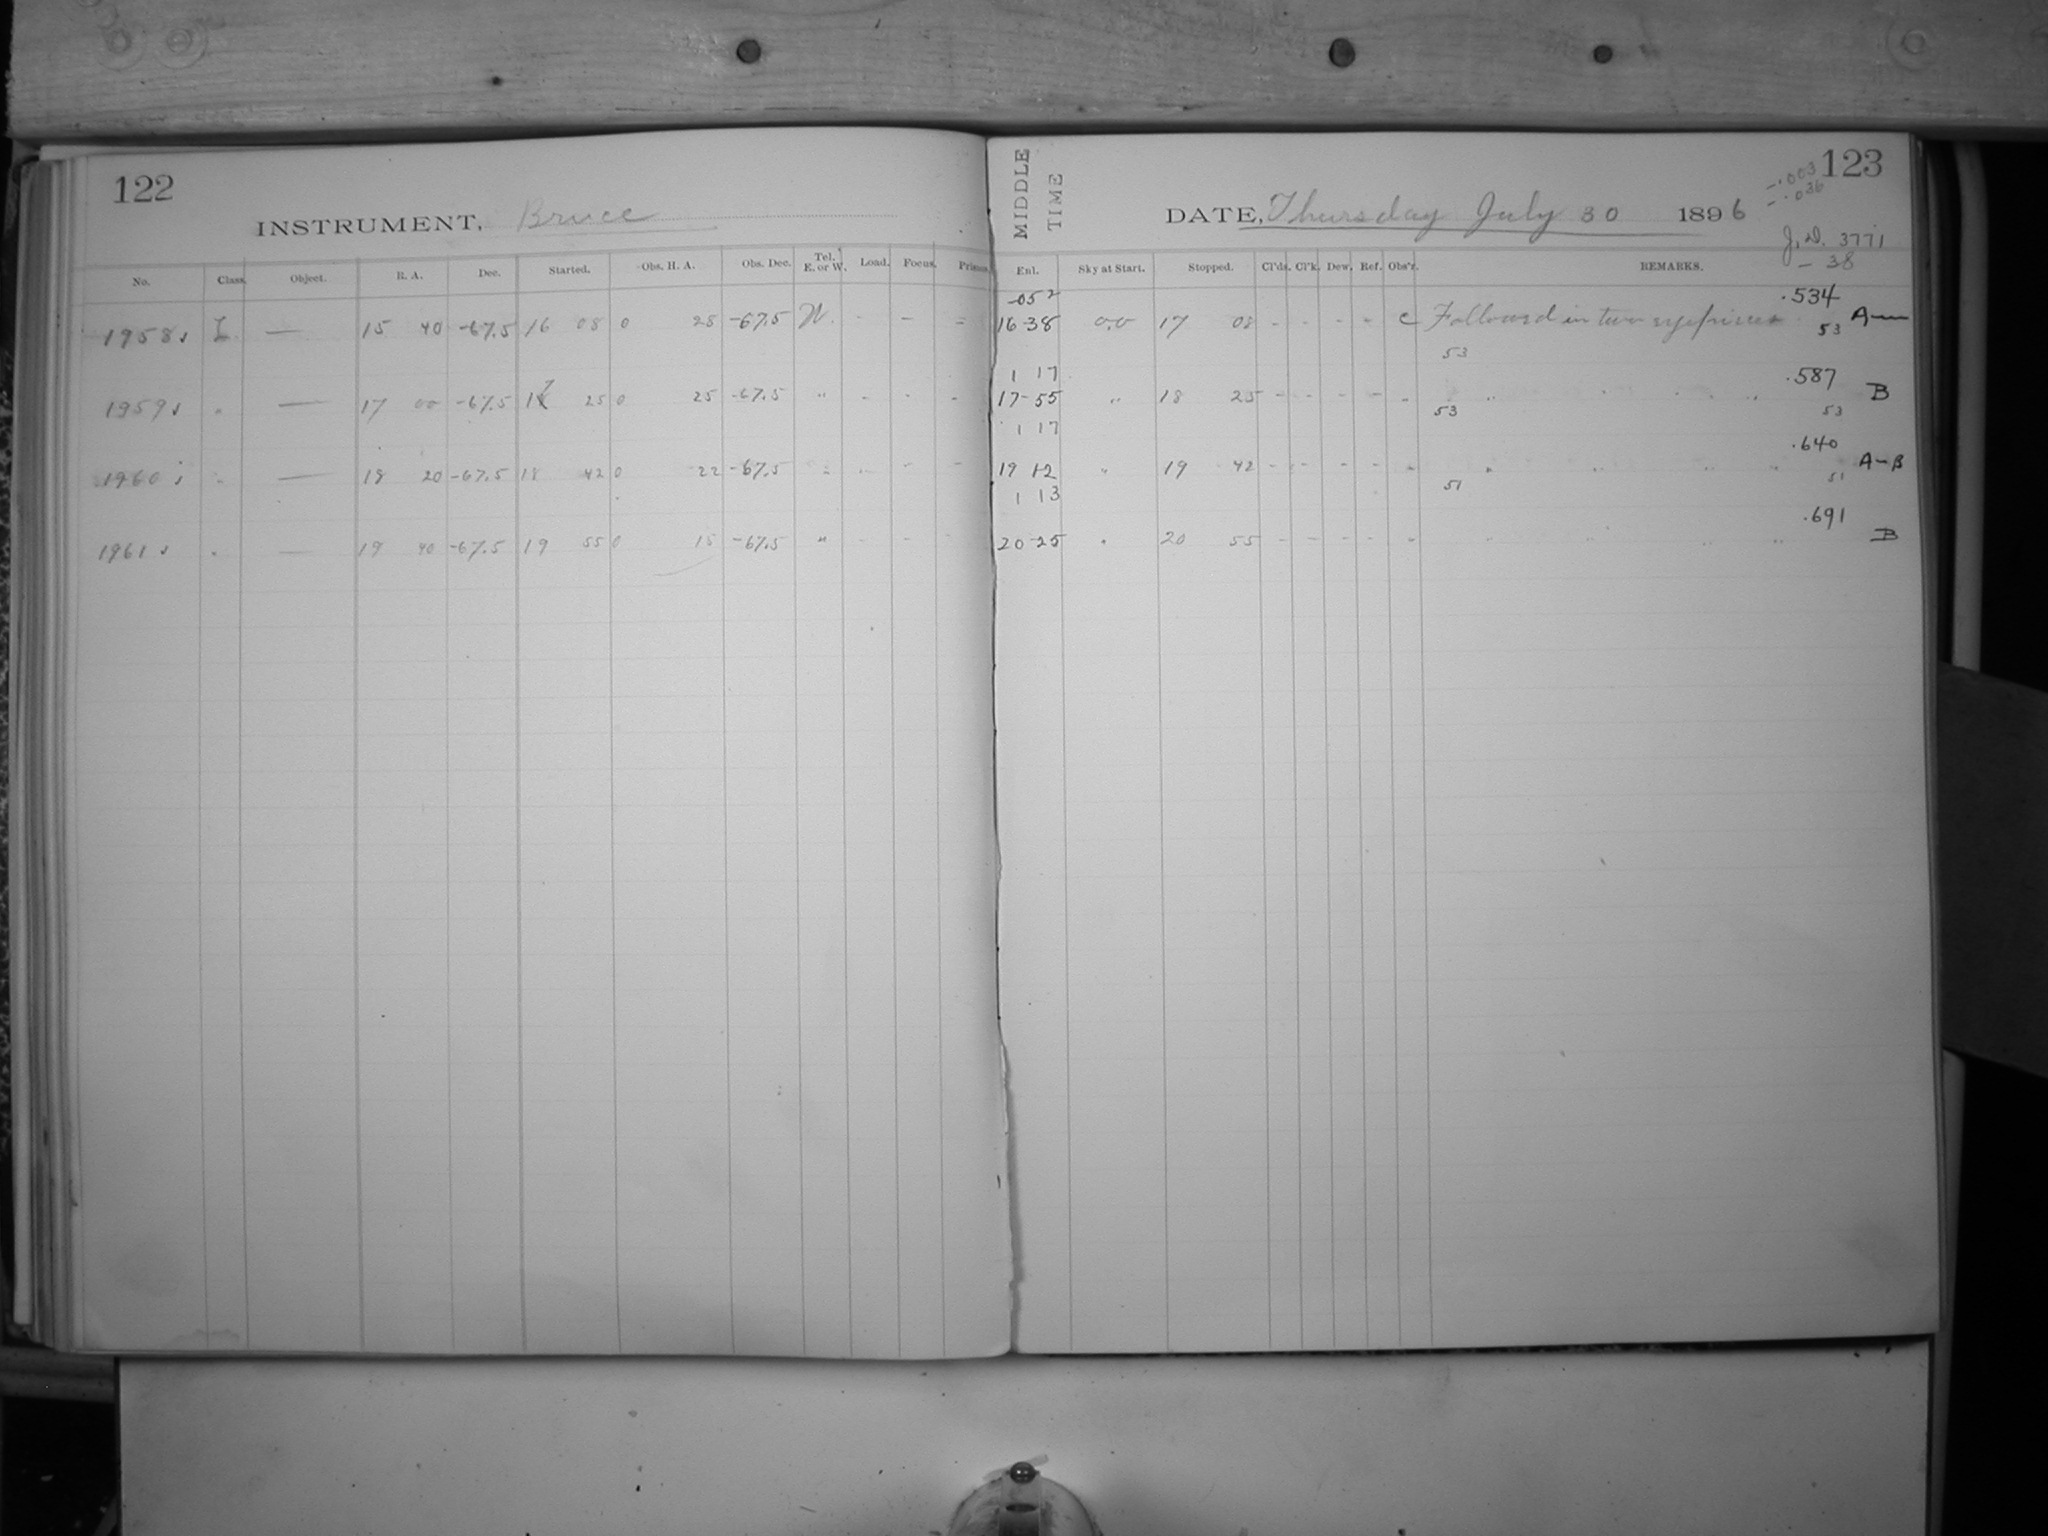 122
INSTRUMENT, Bruce
No. Class. Object. R. A. Dec. Started. Obs. H. A. Obs. Dec. Tel. E. or W. Load. Focus. Prisms.
1958 L — 15 40 -67.5 16 08 0 28 -67.5 W. - - -
1959 " — 17 00 -67.5 17 25 0 25 -67.5 " - - -
1960 " — 18 20 -67.5 18 42 0 22 -67.5 " - - -
1961 " — 19 40 -67.5 19 55 0 15 -67.5 "
123
MIDDLE
TIME
-.003
-.036
DATE, Thursday July 30 1896
J.D. 3771
- 38
Enl. Sky at Start. Stopped. Cl'ds. Cl'k. Dew. Ref. Obs'r. REMARKS.
-052 .534
16-38 00 17 08 - - - - C Followed in two eyepieces 53 A—
53
1 17 .587
17-55 " 18 25 - - - - " " " " " B
53 53
1 17 .640
19 12 " 19 42 - - - - " " " " " A-B
51 51
1 13
.691
20-25 " 20 55 - - - - " " " " " B